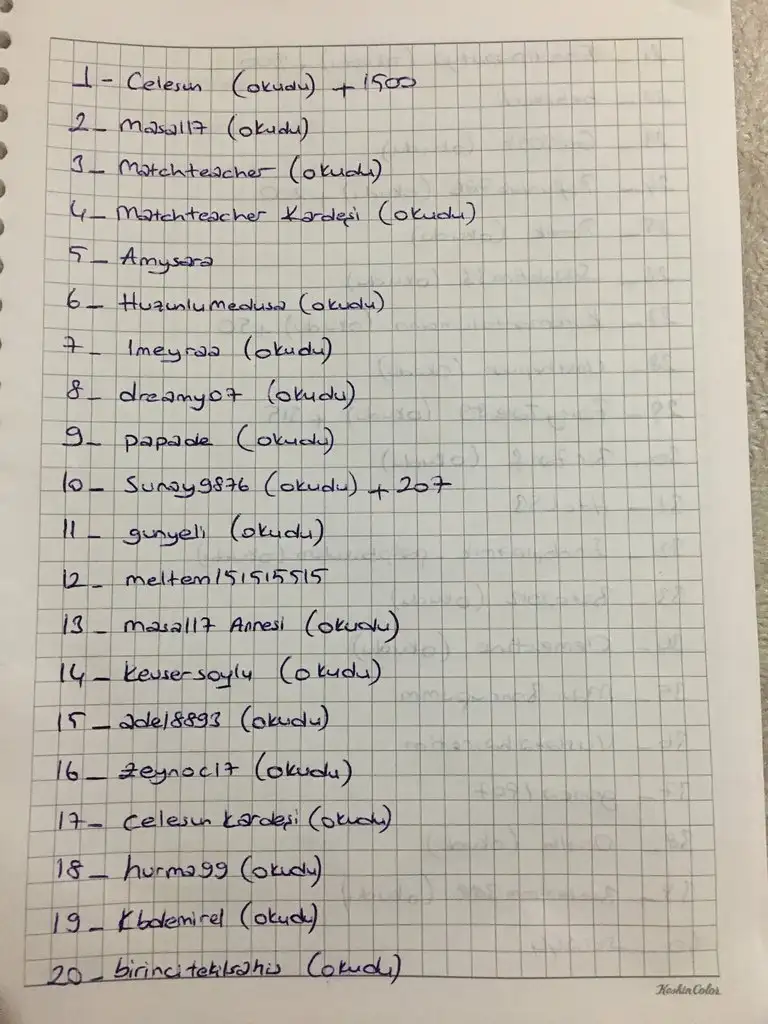 1- Celesun (okudu) + 1500
2- masal17 (okudu)
3- Matchteacher (okudu)
4- Matchteacher Kardeşi (okudu)
5- Amysara
6- Huzunlumedusa (okudu)
7- Imeyraa (okudu)
8- dreamy07 (okudu)
9- papade (okudu)
10- Sunay9876 (okudu) + 207
11- gunyeli (okudu)
12- meltem151515515
13- masal17 Annesi (okudu)
14- kevsersoylu (okudu)
15- adel8893 (okudu)
16- zeynoc17 (okudu)
17- Celesun kardeşi (okudu)
18- hurma99 (okudu)
19- Kbdemirel (okudu)
20- birincitekilsahis (okudu)
KeskinColor